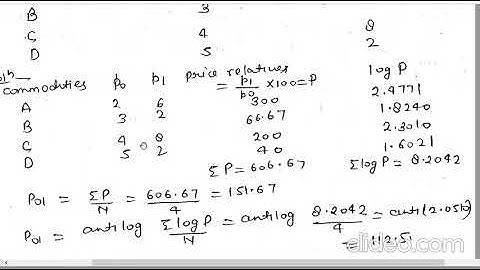 B 3
C 4 8
D 5 2
Soln
commodities p0 p1 price relatives = p1/p0 ×100=P log P
A 2 6 300 2.4771
B 3 2 66.67 1.8240
C 4 8 200 2.3010
D 5 2 40 1.6021
ΣP=606.67 Σlog P = 8.2042
P01 = ΣP/N = 606.67/4 = 151.67
P01 = antilog Σlog P/N = antilog 8.2042/4 = anti(2.0510)
= 112.5
elideo.com